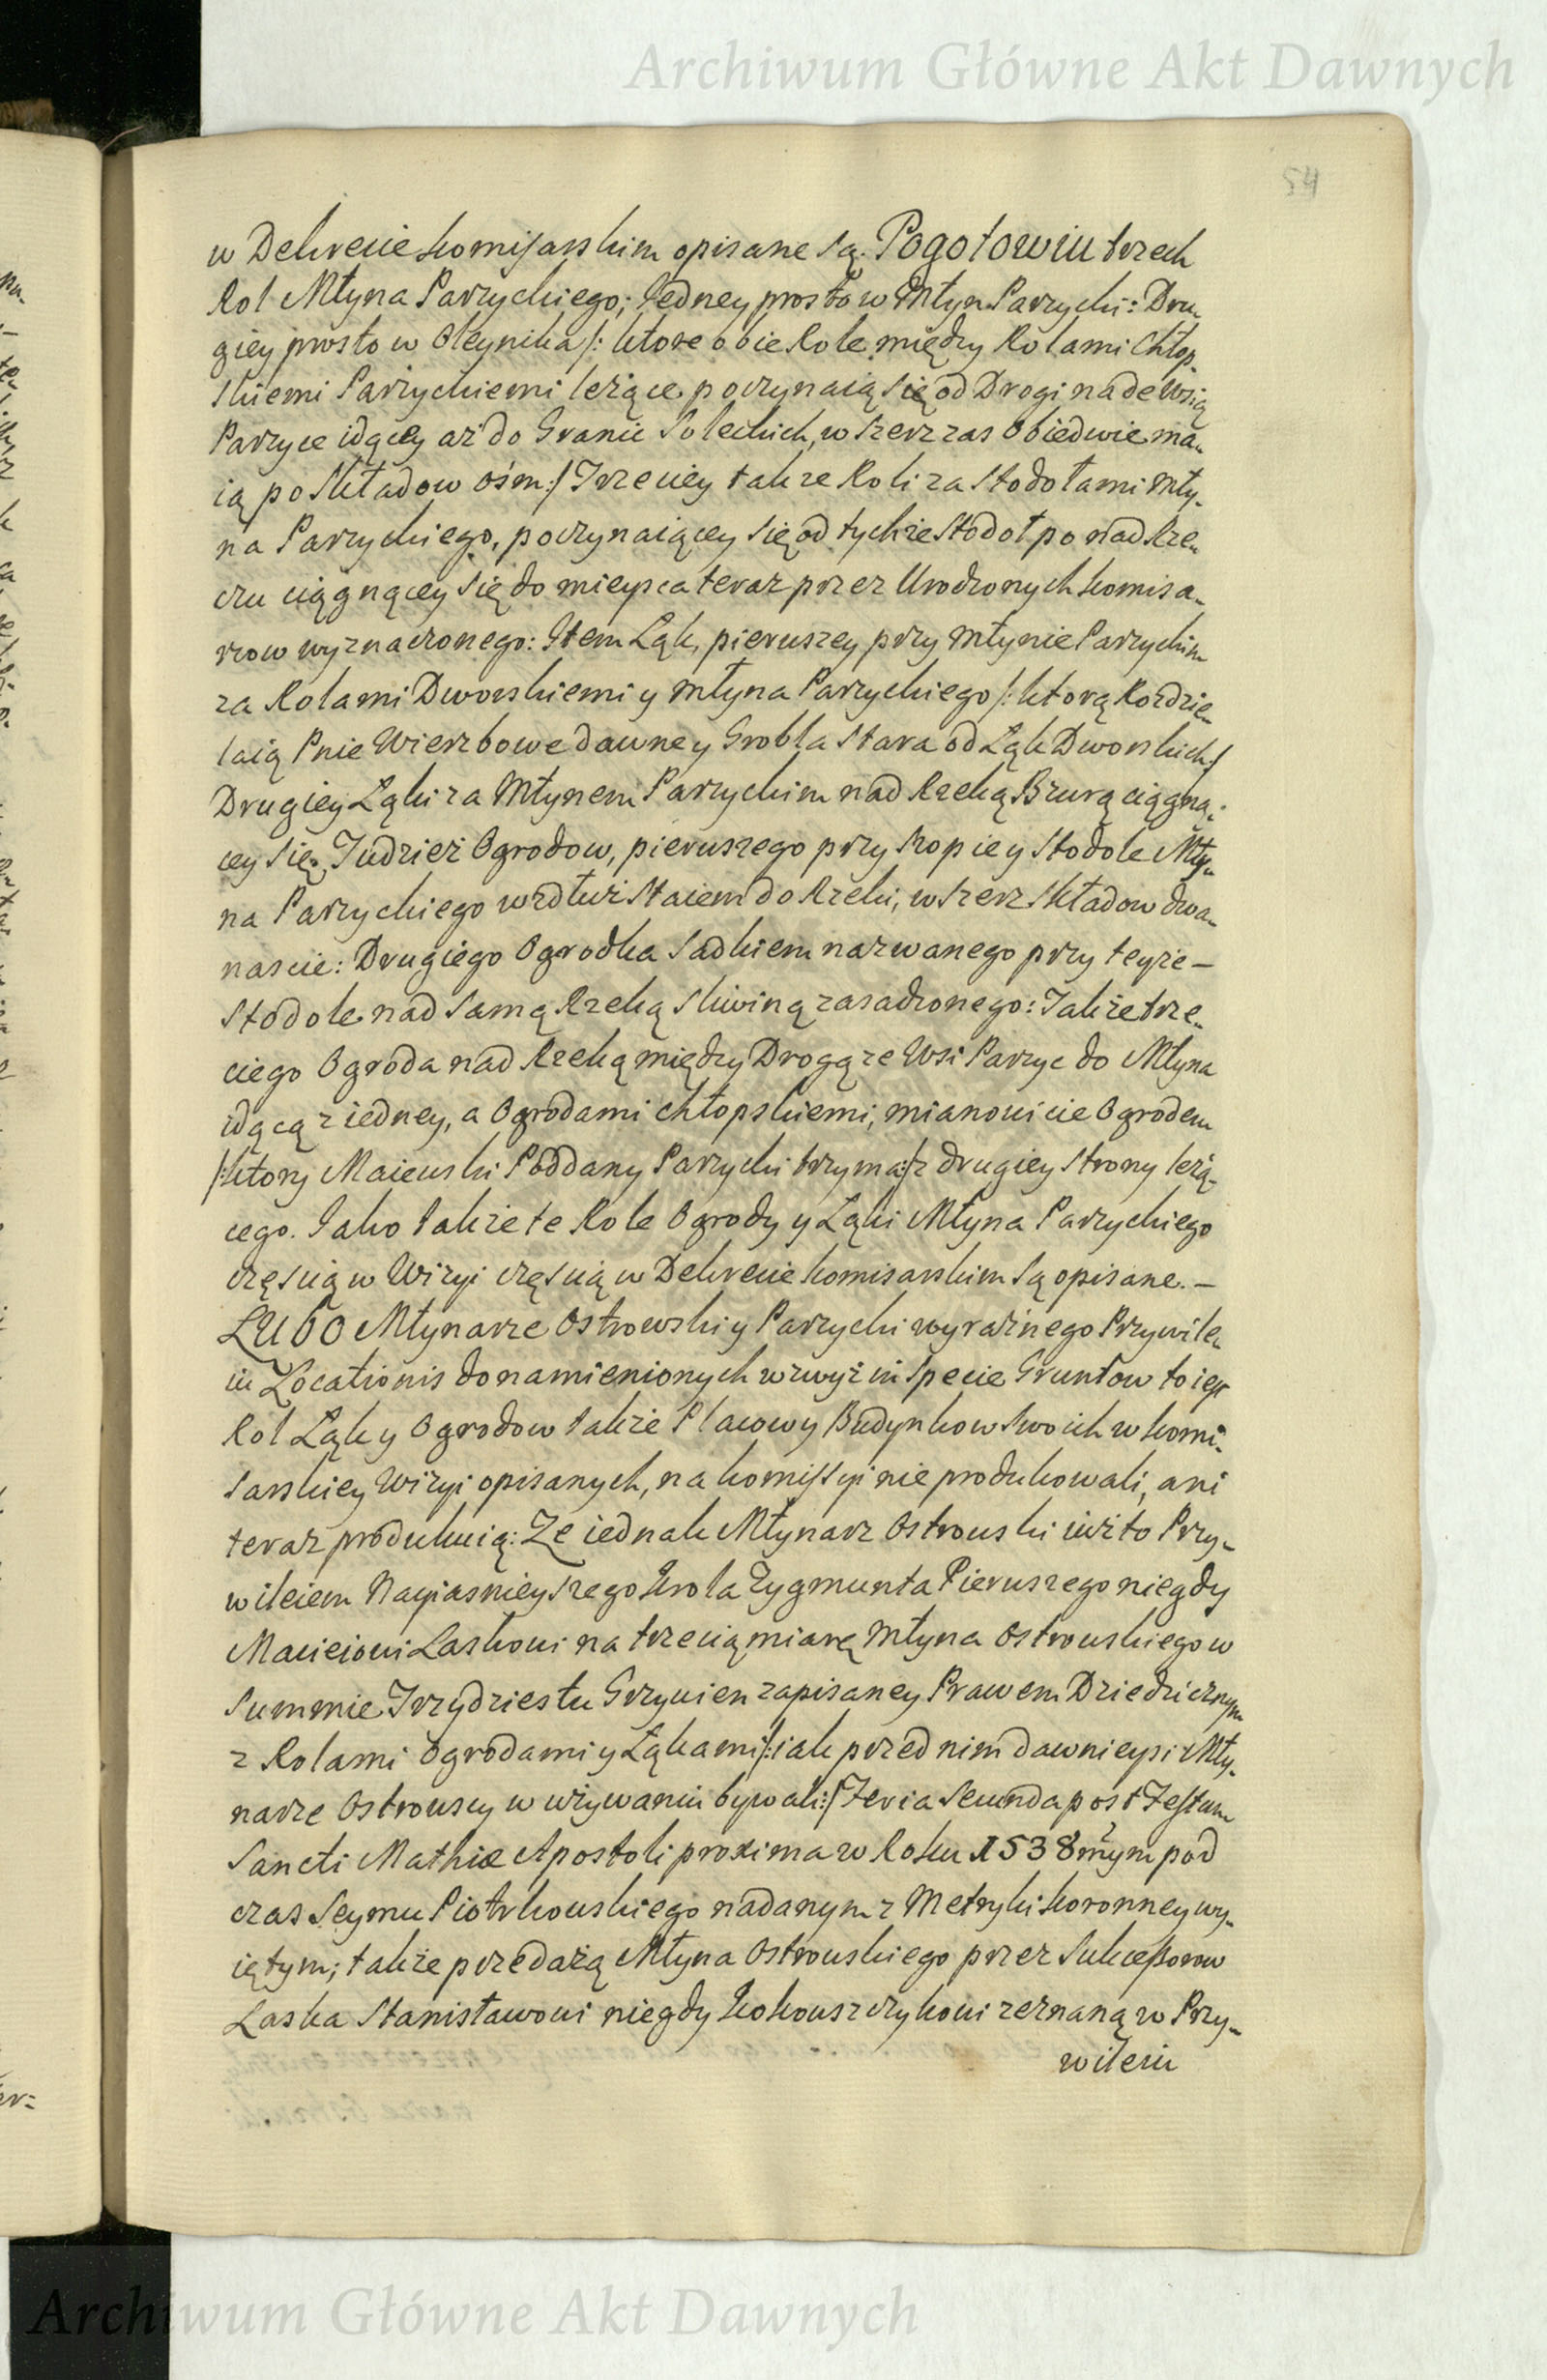 Archiwum Główne Akt Dawnych
54
w Dekrecie komisarskim opisane są. Pogotowiu trzech
Rol Młyna Parzyckiego; Jedney prosto w Młyn Parzycki: Dru-
giey prosto w Oleynika /: ktore obie Role między Rolami Chłop-
skiemi Parzyckiemi leżące poczynaią się od Drogi nade Wsią
Parzyce idącey aż do Granic Soleckich, w szerz zas obiedwie ma-
ią po składow ośm :/ Trzeciey takze Roli za Stodołami Mły-
na Parzyckiego, poczynaiącey się od tychże Stodoł po nad Rze-
czu ciągnącey się do mieysca teraz przez Urodzonych komisa-
rzow wyznaczonego: Item Łąk, pierwszey przy Młynie Parzyckim
za Rolami Dworskiemi y Młyna Parzyckiego /: ktorą Rozdzie-
laią Pnie Wierzbowe dawne y Grobla stara od Łąk Dworskich :/
Drugiey Łąki za Młynem Parzyckim nad Rzeką Bzurą ciągną-
cey się. Tudzież Ogrodow, pierwszego przy szopie y Stodole Mły-
na Parzyckiego wzdłuż staiem do Rzeki, w szerz składow dwa-
nascie: Drugiego Ogrodka Sadkiem nazwanego przy teyże –
Stodole nad samą Rzeką sliwiną zasadzonego: Takżetrze-
ciego Ogroda nad Rzeką między Drogą ze Wsi Parzyc do Młyna
idącą z iedney, a Ogrodami chłopskiemi, mianowicie Ogrodem
/: ktory Maiewski Poddany Parzycki trzyma :/ z drugiey strony leżą-
cego. Jako także te Role Ogrody y Łąki Młyna Parzyckiego
częscią w Wizyi częscią w Dekrecie komisarskim są opisane. –
LUBO Młynarze Ostrowski y Parzycki wyraźnego Przywile-
iu Locationis do namienionych wzwyż in specie Gruntow to iest
Rol Łąk y Ogrodow także Placowy Budynkow swoich w komi-
sarskiey Wizyi opisanych, na komissyi nie produkowali, ani
teraz produkuią: Ze iednak Młynarz Ostrowski iużto Przy-
wileiem Nayiasnieyszego Krola Zygmunta Pierwszego niegdy
Macieiowi Laskowi na trzecią miarę Młyna Ostrowskiego w
Summie Trzydziestu Grzywien zapisaney Prawem Dziedzicznym
z Rolami Ogrodami y Łąkami /: iak przed nim dawnieysi Mły-
narze Ostrowscy w używaniu bywali :/ Feria Secunda post Festum
Sancti Mathiæ Apostoli proxima w Roku 1538mym pod
czas Seymu Piotrkowskiego nadanym z Metryki koronney wy-
iętym; także przedażą Młyna Ostrowskiego przez Sukcessorow
Laska Stanisławowi niegdy Kokouszczykowi zeznaną w Przy-
wileiu
Archiwum Główne Akt Dawnych